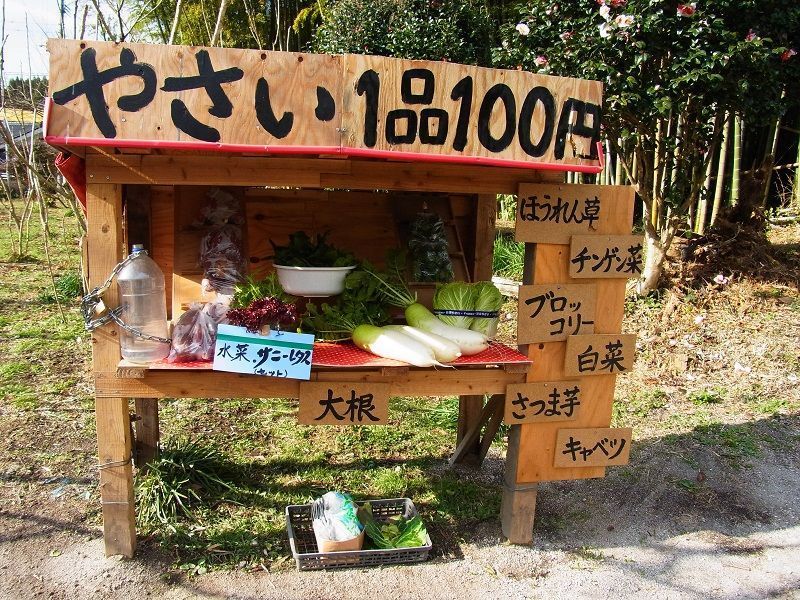 やさい 1品100円
ほうれん草
チンゲン菜
ブロッ
コリー
白菜
さつま芋
キャベツ
大根
水菜・サニーレタス
(セット)